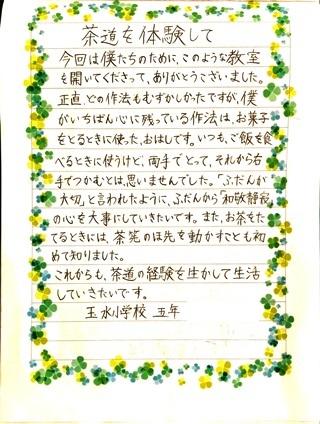 茶道を体験して
今回は僕たちのために、このような教室
を開いてくださって、ありがとうございました。
正直、どの作法もむずかしかったですが、僕
がいちばん心に残っている作法は、お菓子
をとるときに使った、おはしです。いつも、ご飯を食
べるときに使うけど、両手でとって、それから右
手でつかむとは、思いませんでした。「ふだんが
大切」と言われたように、ふだんから「和敬静寂」
の心を大事にしていきたいです。また、お茶をた
てるときには、茶筅のほ先を動かすことも初
めて知りました。
これからも、茶道の経験を生かして生活
していきたいです。
玉水小学校 五年